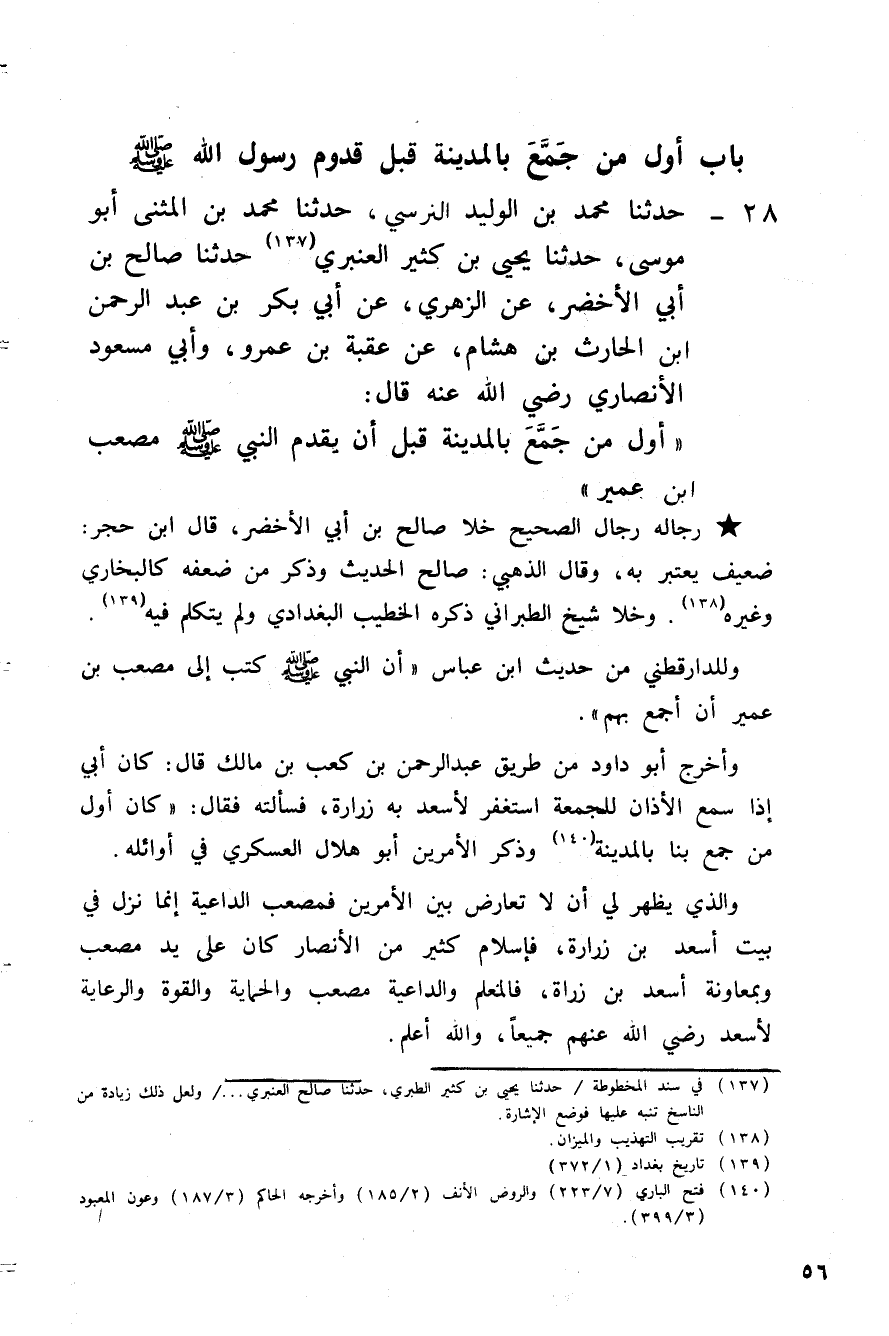 باب أول من جَمَّعَ بالمدينة قبل قدوم رسول الله ﷺ
٢٨ ـ حدثنا محمد بن الوليد النرسي، حدثنا محمد بن المثنى أبو
موسى، حدثنا يحيى بن كثير العنبري(١٣٧) حدثنا صالح بن
أبي الأخضر، عن الزهري، عن أبي بكر بن عبد الرحمن
ابن الحارث بن هشام، عن عقبة بن عمرو، وأبي مسعود
الأنصاري رضي الله عنه قال:
« أول من جَمَّعَ بالمدينة قبل أن يقدم النبي ﷺ مصعب
ابن عمير »
★ رجاله رجال الصحيح خلا صالح بن أبي الأخضر، قال ابن حجر:
ضعيف يعتبر به، وقال الذهبي: صالح الحديث وذكر من ضعفه كالبخاري
وغيره(١٣٨). وخلا شيخ الطبراني ذكره الخطيب البغدادي ولم يتكلم فيه(١٣٩).
وللدارقطني من حديث ابن عباس « أن النبي ﷺ كتب إلى مصعب بن
عمير أن أجمع بهم».
وأخرج أبو داود من طريق عبدالرحمن بن كعب بن مالك قال: كان أبي
إذا سمع الأذان للجمعة استغفر لأسعد به زرارة، فسألته فقال: « كان أول
من جمع بنا بالمدينة(١٤٠) وذكر الأمرين أبو هلال العسكري في أوائله.
والذي يظهر لي أن لا تعارض بين الأمرين فمصعب الداعية إنما نزل في
بيت أسعد بن زرارة، فإسلام كثير من الأنصار كان على يد مصعب
وبمعاونة أسعد بن زراة، فالمعلم والداعية مصعب والحماية والقوة والرعاية
لأسعد رضي الله عنهم جميعاً، والله أعلم.
(١٣٧) في سند المخطوطة / حدثنا يحيى بن كثير الطبري، حدثنا صالح العنبري.../ ولعل ذلك زيادة من
الناسخ تنبه عليها فوضع الإشارة.
(١٣٨) تقريب التهذيب والميزان.
(١٣٩) تاريخ بغداد (٣٧٢/١)
(١٤٠) فتح الباري (٢٢٣/٧) والروض الأنف (١٨٥/٢) وأخرجه الحاكم (١٨٧/٣) وعون المعبود
(٣٩٩/٣).
٥٦